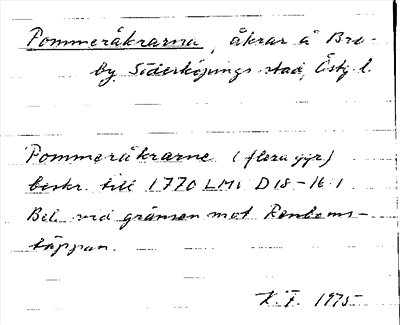 Pommeråkrarna, åkrar å Bro-
by Söderköpings stad, Östg. l.
Pommeråkrarne (flera ggr)
beskr. till 1770 LMV D18-16:1
Bel. vid gränsen mot Renboms-
täppan.
K. F. 1975